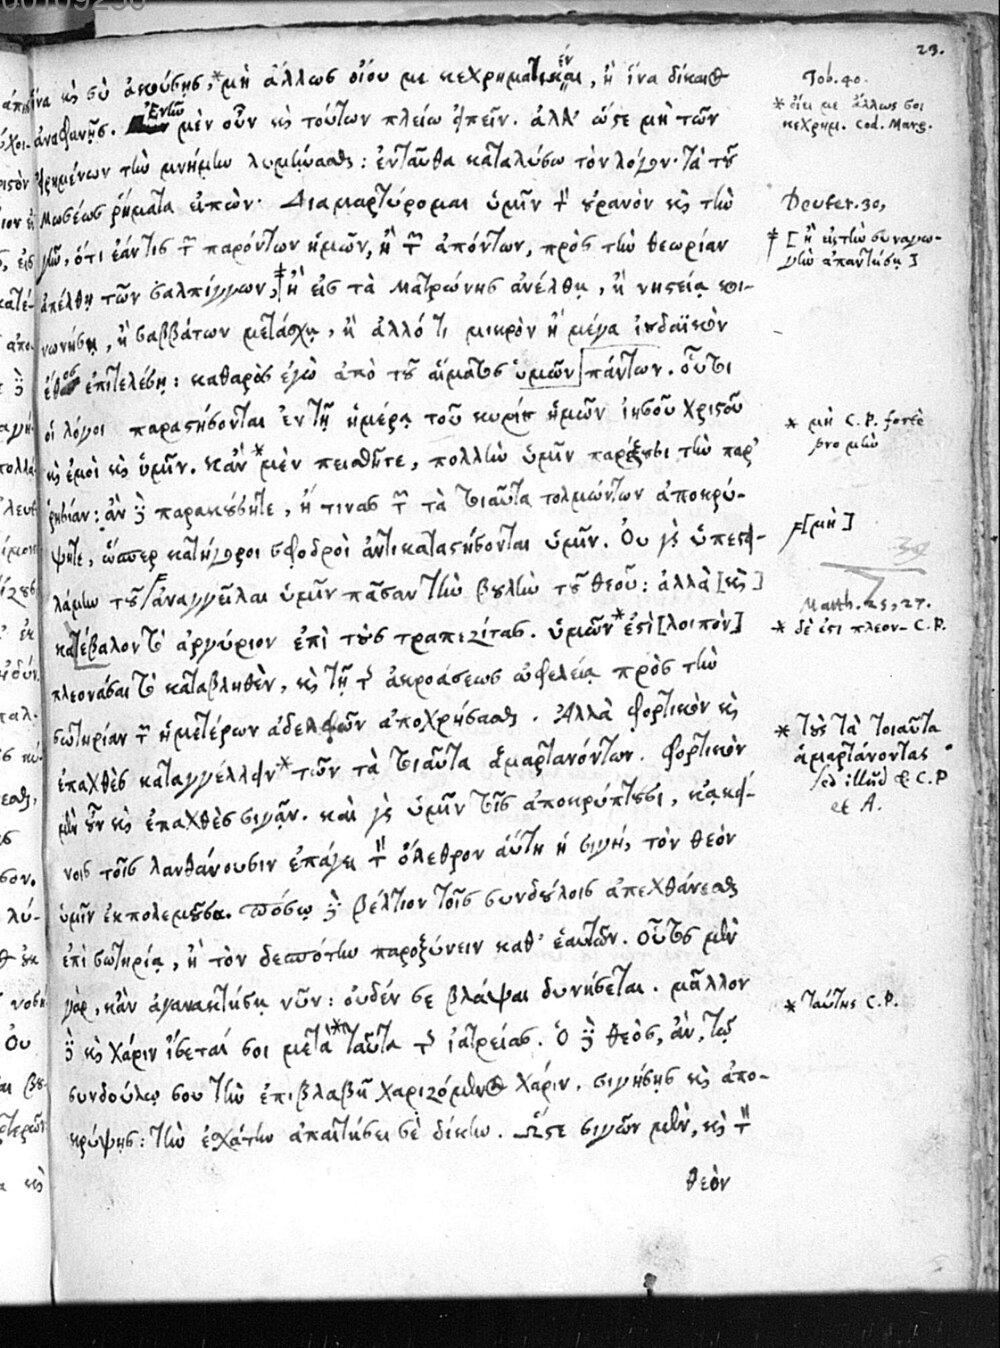 23.
ἵνα κỳ σὺ ἀκούσῃς, * μὴ ἄλλως οἴου με κεχρηματικέναι, ἢ ἵνα δίκαιος
ἀναφανῇς. Ἐνῶ μὲν οὖν κỳ τούτων πλείω εἰπεῖν. ἀλλ' ὥστε μὴ τῶν
εἰρημένων τὴν μνήμην λυμήνασθαι: ἐνταῦθα καταλύσω τὸν λόγον· τὰ τοῦ
Μωσέως ῥήματα εἰπών· Διαμαρτύρομαι ὑμῖν τὸν οὐρανὸν κỳ τὴν
γῆν, ὅτι ἐάν τις τῶν παρόντων ἡμῶν, ἢ τῶν ἀπόντων, πρὸς τὴν θεωρίαν
ἀπέλθῃ τῶν σαλπίγγων, ‡ ἢ εἰς τὰ Ματρώνης ἀνέλθῃ, ἢ νηστείᾳ κοι-
νωνήσῃ, ἢ σαββάτων μετάσχῃ, ἢ ἄλλό τι μικρὸν ἢ μέγα ἰουδαϊκὸν
ἔθος ἐπιτελέσῃ: καθαρὸς ἐγὼ ἀπὸ τοῦ αἵματος ὑμῶν πάντων. οὗτοι
οἱ λόγοι παραστήσονται ἐν τῇ ἡμέρᾳ τοῦ κυρίου ἡμῶν ἰησοῦ χριστοῦ
κỳ ἐμοὶ κỳ ὑμῖν. κἂν * μὲν πεισθῆτε, πολλὴν ὑμῖν παρέξουσι τὴν παρ'
ρησίαν: ἂν δὲ παρακούσητε, ἤ τινας τῶν τὰ τοιαῦτα τολμώντων ἀποκρύ-
ψητε, ὥσπερ κατήγοροι σφοδροὶ ἀντικαταστήσονται ὑμῖν. Οὐ γὰρ ὑπεστει-
λάμην τοῦ ἀναγγεῖλαι ὑμῖν πᾶσαν τὴν βουλὴν τοῦ θεοῦ: ἀλλὰ [κỳ]
κατέβαλον τὸ ἀργύριον ἐπὶ τοὺς τραπεζίτας. ὑμῶν * ἐστὶ [λοιπὸν]
πλεονάσαι τὸ καταβληθὲν, κỳ τῇ τῆς ἀκροάσεως ὠφελείᾳ πρὸς τὴν
σωτηρίαν τῶν ἡμετέρων ἀδελφῶν ἀποχρήσασθαι. Ἀλλὰ φορτικὸν κỳ
ἐπαχθὲς καταγγέλλειν * τῶν τὰ τοιαῦτα ἁμαρτανόντων. φορτικὸν
μὲν οὖν κỳ ἐπαχθὲς σιγᾷν. καὶ γὰρ ὑμῖν τοῖς ἀποκρύπτουσι, κᾀκεί-
νοις τοῖς λανθάνουσιν ἐπάγει τὸν ὄλεθρον αὕτη ἡ σιγὴ, τὸν θεὸν
ὑμῖν ἐκπολεμοῦσα. πόσῳ δὲ βέλτιον τοῖς συνδούλοις ἀπεχθάνεσθαι
ἐπὶ σωτηρίᾳ, ἢ τὸν δεσπότην παροξύνειν καθ' ἑαυτῶν. οὗτος μὲν
γὰρ, κἂν ἀγανακτήσῃ νῦν: οὐδέν σε βλάψαι δυνήσεται. μᾶλλον
δὲ κỳ χάριν εἴσεταί σοι μετὰ * ταῦτα τῆς ἰατρείας. Ὁ δὲ θεὸς, ἂν, τῷ
συνδούλῳ σου τὴν ἐπιβλαβῆ χαριζόμενος χάριν, σιγήσῃς κỳ ἀπο-
κρύψῃς: τὴν ἐσχάτην ἀπαιτήσει σὲ δίκην. Ὥστε σιγῶν μὲν, κỳ τὸν
θεὸν
Job. 40.
* οἴει με ἄλλως σοι
κεχρημ. Cod. Marg.
Deuter. 30,
‡ [ἢ εἰς τὴν συναγω-
γὴν ἀπαντήσῃ]
* μὴ C.P. fortè
pro μὲν
[μὴ]
39
Matth. 25, 27.
* δὲ ἐστι πλεον- C.P.
* τοὺς τὰ τοιαῦτα
ἁμαρτάνοντας
sed illud & C.P
et A.
* ταύτης C.P.